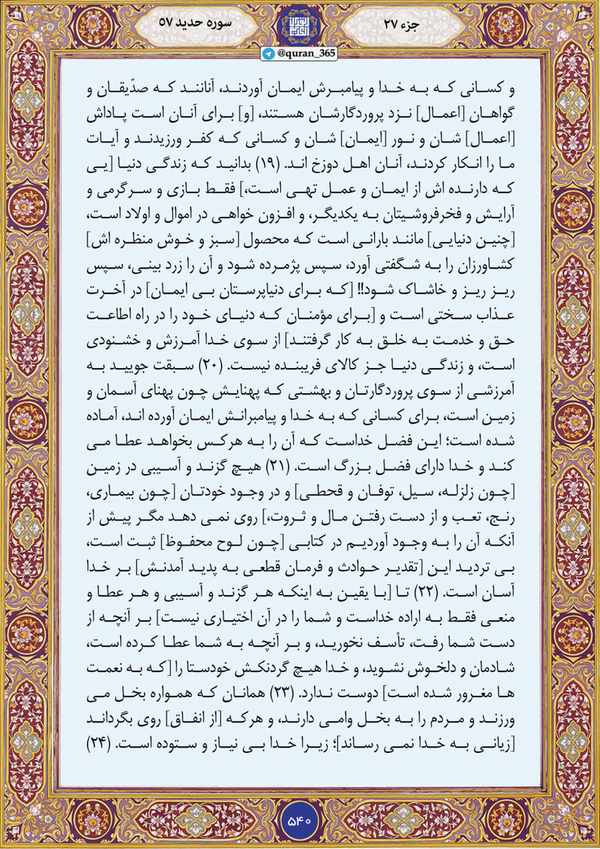 جزء ۲۷
سوره حدید ۵۷
@quran_365
و کسانی که به خدا و پیامبرش ایمان آوردند، آنانند که صدّیقان و
گواهان [اعمال] نزد پروردگارشان هستند، [و] برای آنان است پاداش
[اعمال] شان و نور [ایمان] شان و کسانی که کفر ورزیدند و آیات
ما را انکار کردند، آنان اهل دوزخ اند. (۱۹) بدانید که زندگی دنیا [یی
که دارنده اش از ایمان و عمل تهی است،] فقط بازی و سرگرمی و
آرایش و فخرفروشیتان به یکدیگر، و افزون خواهی در اموال و اولاد است،
[چنین دنیایی] مانند بارانی است که محصول [سبز و خوش منظره اش]
کشاورزان را به شگفتی آورد، سپس پژمرده شود و آن را زرد بینی، سپس
ریز ریز و خاشاک شود!! [که برای دنیاپرستان بی ایمان] در آخرت
عذاب سختی است و [برای مؤمنان که دنیای خود را در راه اطاعت
حق و خدمت به خلق به کار گرفتند] از سوی خدا آمرزش و خشنودی
است، و زندگی دنیا جز کالای فریبنده نیست. (۲۰) سبقت جویید به
آمرزشی از سوی پروردگارتان و بهشتی که پهنایش چون پهنای آسمان و
زمین است، برای کسانی که به خدا و پیامبرانش ایمان آورده اند، آماده
شده است؛ این فضل خداست که آن را به هرکس بخواهد عطا می
کند و خدا دارای فضل بزرگ است. (۲۱) هیچ گزند و آسیبی در زمین
[چون زلزله، سیل، توفان و قحطی] و در وجود خودتان [چون بیماری،
رنج، تعب و از دست رفتن مال و ثروت،] روی نمی دهد مگر پیش از
آنکه آن را به وجود آوردیم در کتابی [چون لوح محفوظ] ثبت است،
بی تردید این [تقدیر حوادث و فرمان قطعی به پدید آمدنش] بر خدا
آسان است. (۲۲) تا [با یقین به اینکه هر گزند و آسیبی و هر عطا و
منعی فقط به اراده خداست و شما را در آن اختیاری نیست] بر آنچه از
دست شما رفت، تأسف نخورید، و بر آنچه به شما عطا کرده است،
شادمان و دلخوش نشوید، و خدا هیچ گردنکش خودستا را [که به نعمت
ها مغرور شده است] دوست ندارد. (۲۳) همانان که همواره بخل می
ورزند و مردم را به بخل وامی دارند، و هرکه [از انفاق] روی بگرداند
[زیانی به خدا نمی رساند]؛ زیرا خدا بی نیاز و ستوده است. (۲۴)
۵۴۰